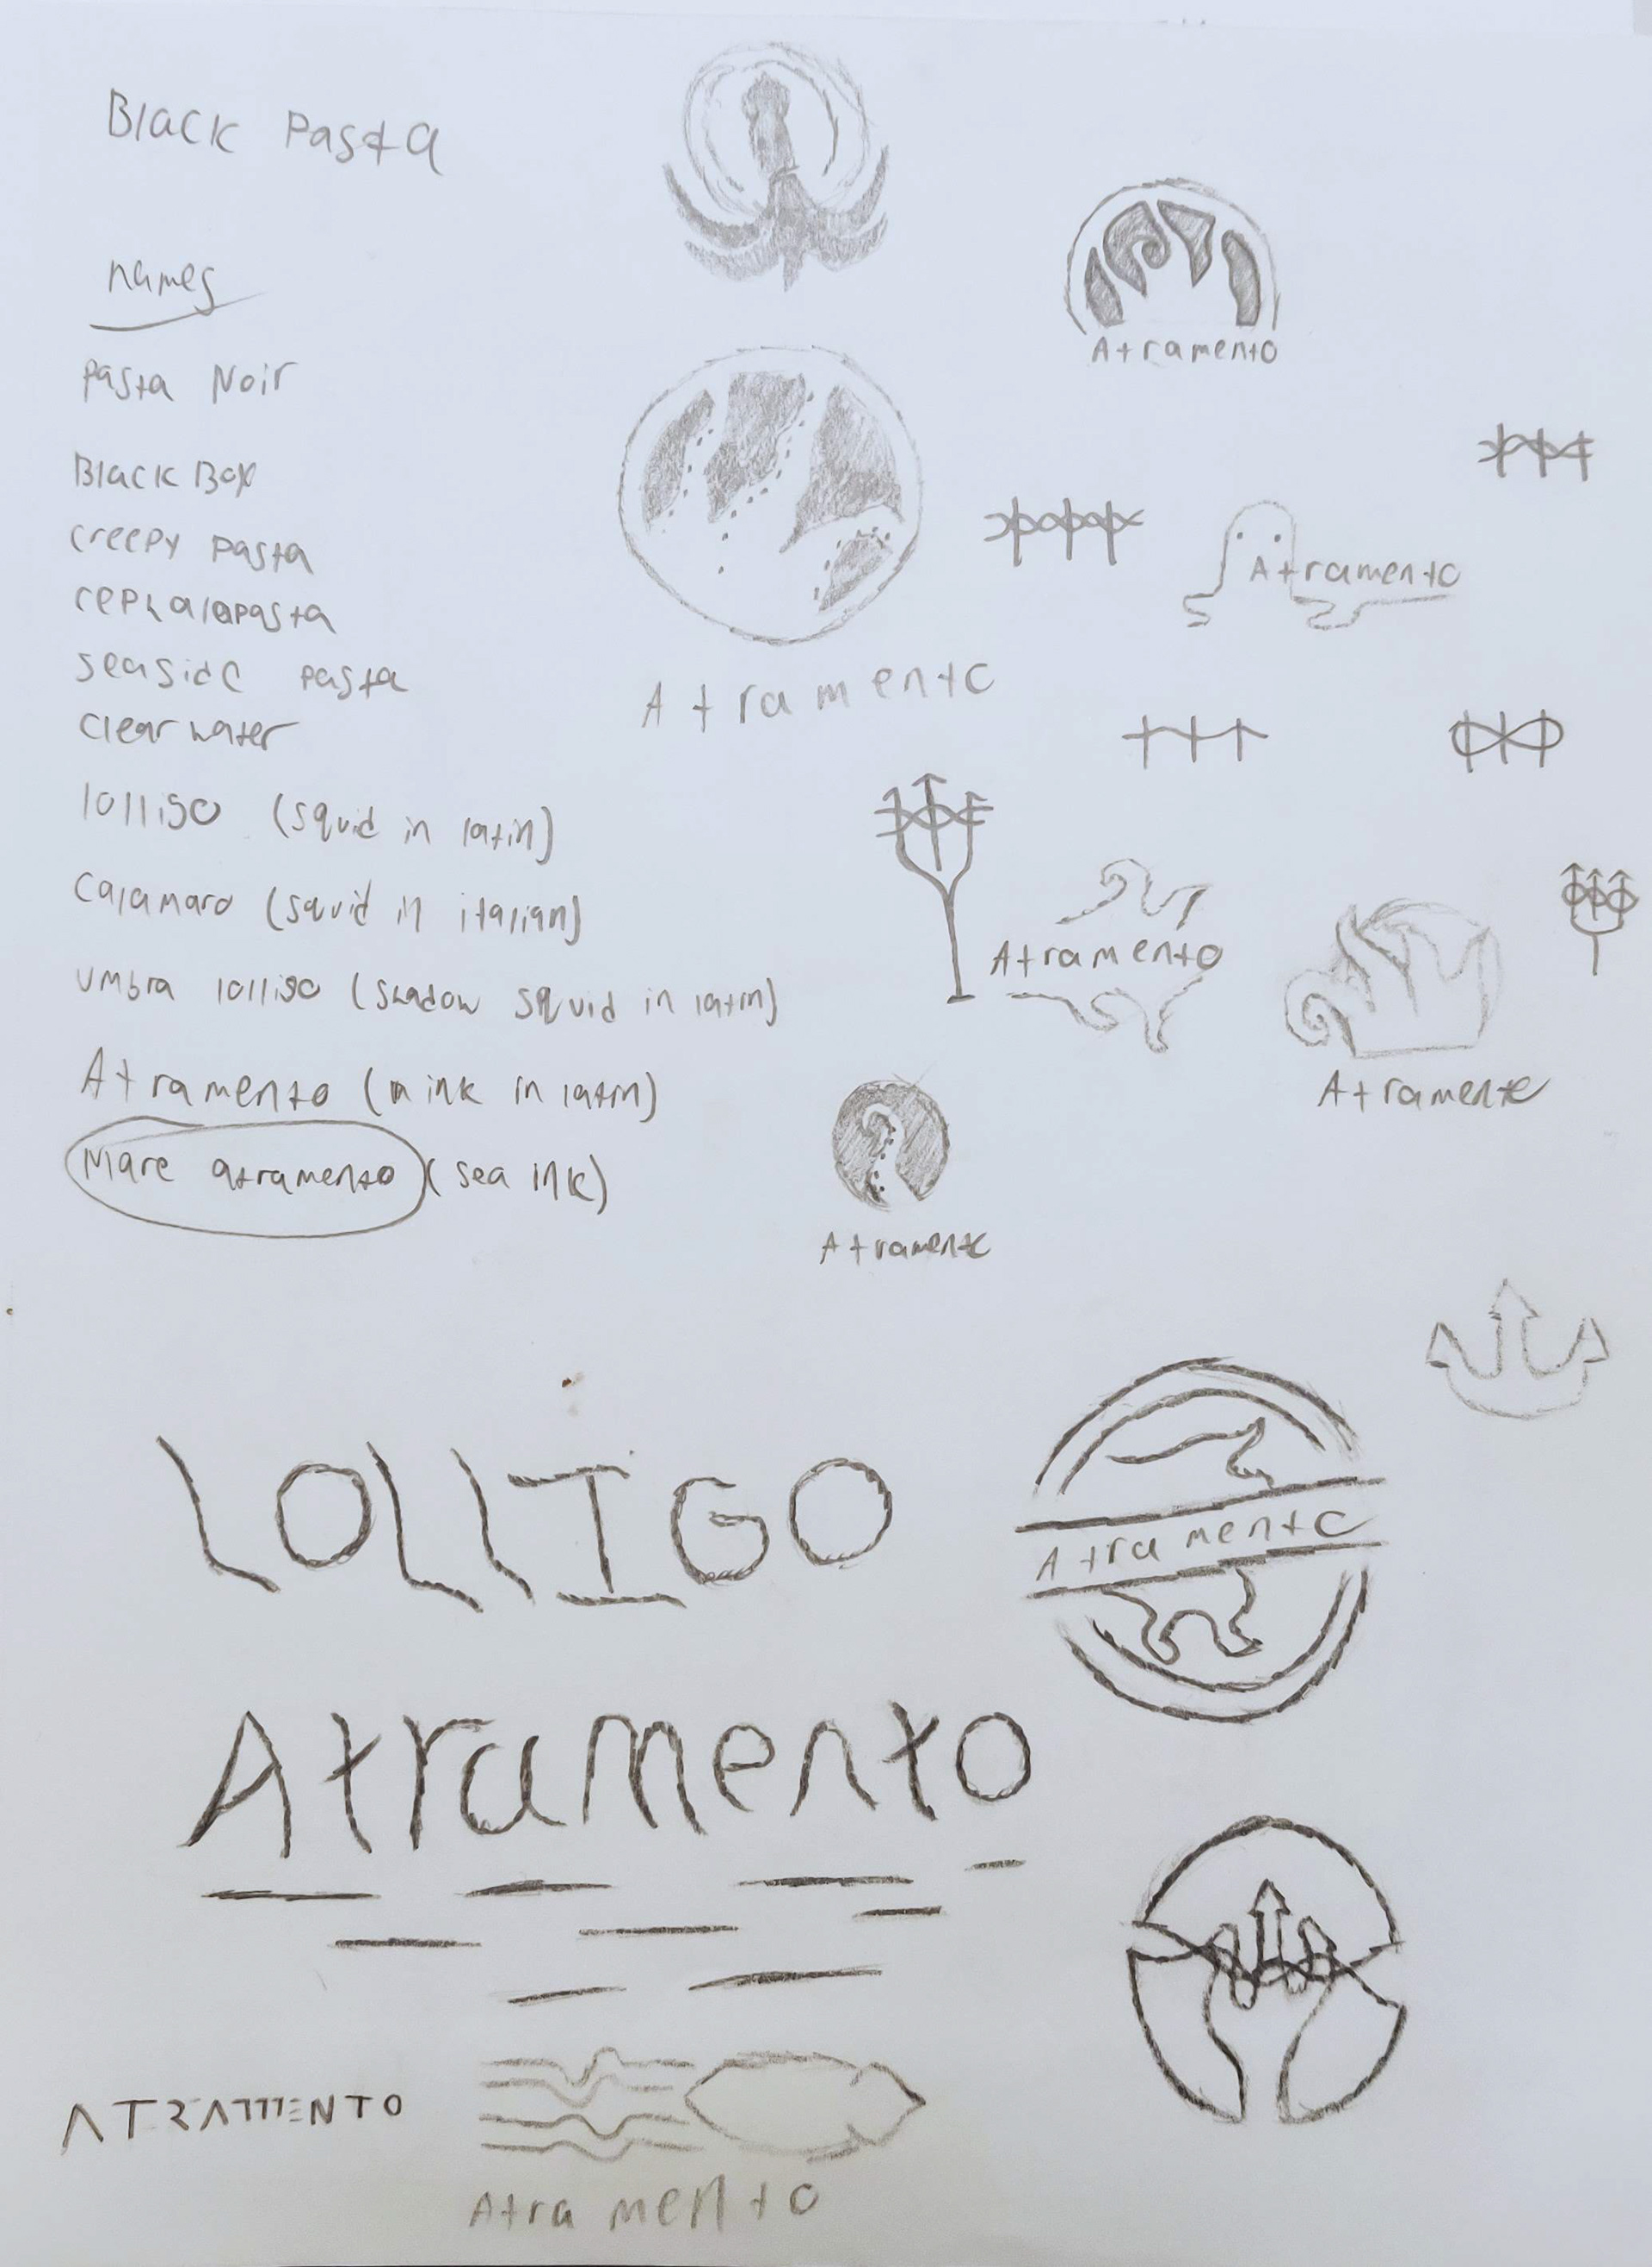 Black Pasta
names
Pasta Noir
Black Box
creepy pasta
cephalapasta
seaside pasta
clear water
lolligo (squid in latin)
Calamaro (squid in italian)
umbra lolligo (shadow squid in latin)
Atramento (ink in latin)
Mare atramento (sea ink)
Atramento
Atramento
Atramento
Atramento
Atramento
Atramento
LOLLIGO
Atramento
Atramento
ATRAMENTO
Atramento